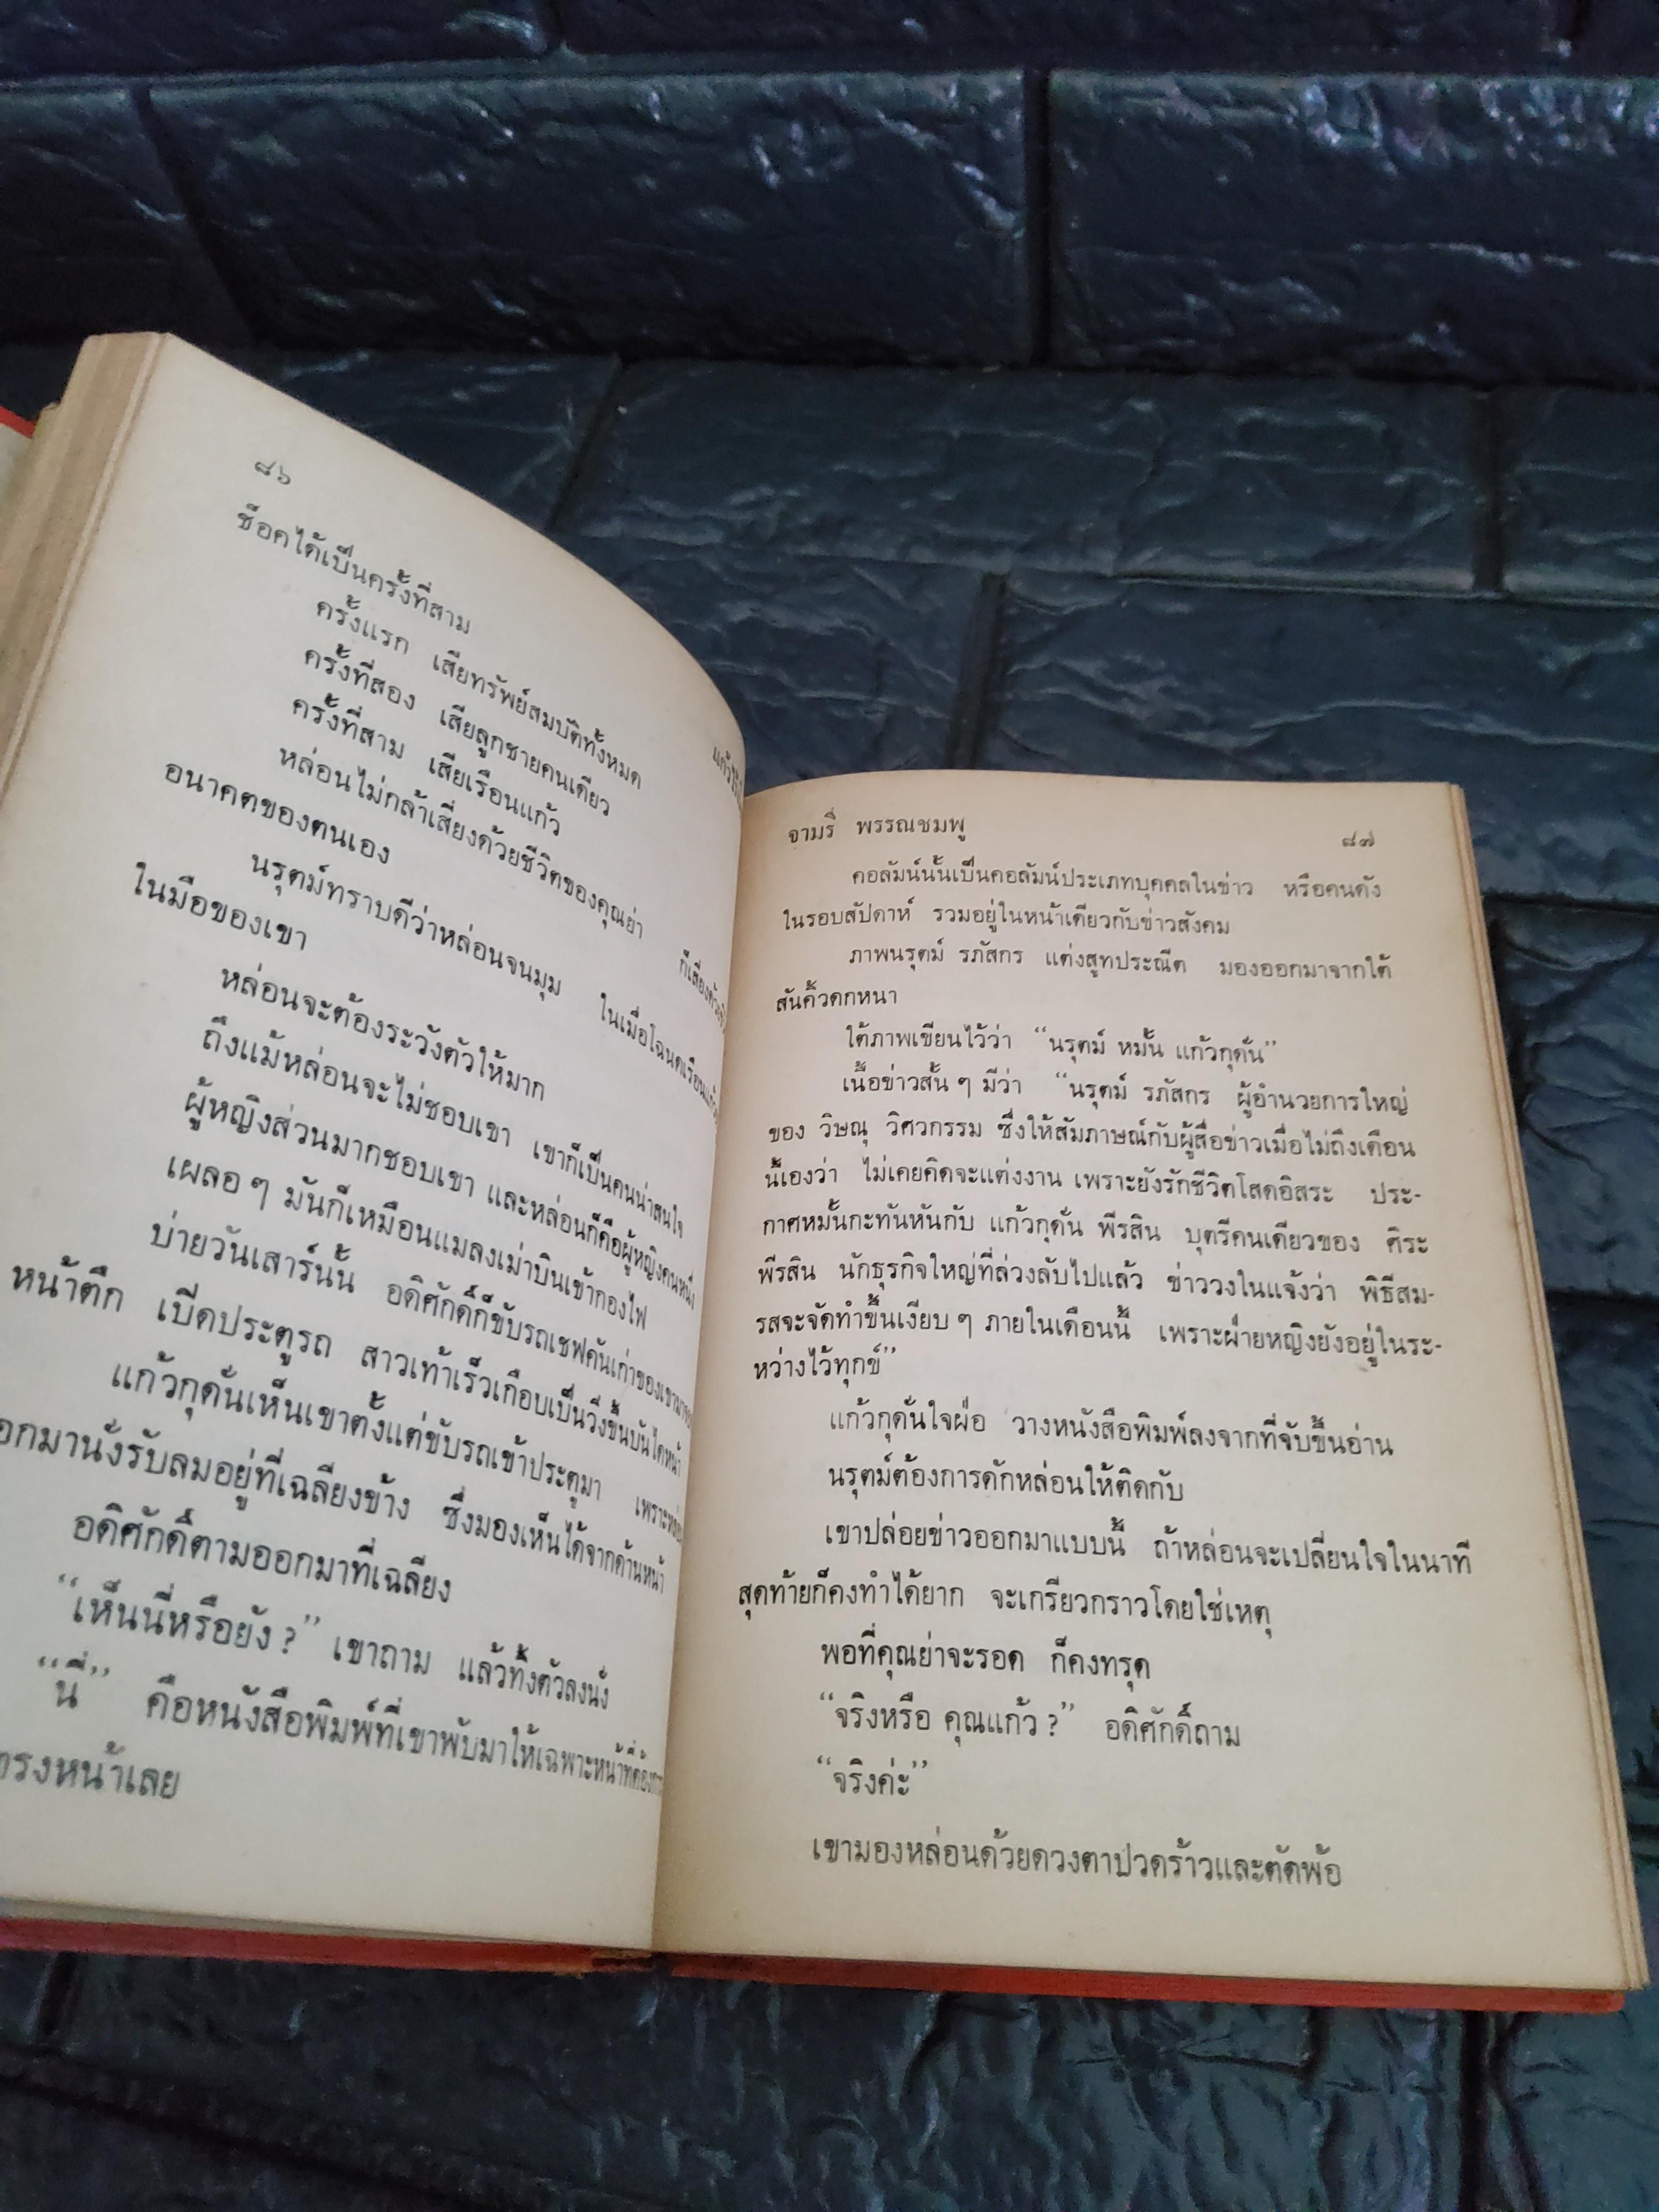 ๘๖
ช็อคได้เป็นครั้งที่สาม
ครั้งแรก เสียทรัพย์สมบัติทั้งหมด
ครั้งที่สอง เสียลูกชายคนเดียว
ครั้งที่สาม เสียเรือนแก้ว
หล่อนไม่กล้าเสี่ยงด้วยชีวิตของคุณย่า
อนาคตของตนเอง
นรุตม์ทราบดีว่าหล่อนจนมุม ในเมื่อโฉนดเรือนแก้ว
ในมือของเขา
หล่อนจะต้องระวังตัวให้มาก
ถึงแม้หล่อนจะไม่ชอบเขา เขาก็เป็นคนน่าสนใจ
ผู้หญิงส่วนมากชอบเขา และหล่อนก็คือผู้หญิงคนหนึ่ง
เผลอ ๆ มันก็เหมือนแมลงเม่าบินเข้ากองไฟ
บ่ายวันเสาร์นั้น อดิศักดิ์ก็ขับรถเชฟคันเก่าของเขามา
หน้าตึก เปิดประตูรถ สาวเท้าเร็วเกือบเป็นวิ่งขึ้นบันไดหน้า
แก้วกุดั่นเห็นเขาตั้งแต่ขับรถเข้าประตูมา เพราะ
มานั่งรับลมอยู่ที่เฉลียงข้าง ซึ่งมองเห็นได้จากด้านหน้า
อดิศักดิ์ตามออกมาที่เฉลียง
“เห็นนี่หรือยัง ?” เขาถาม แล้วทิ้งตัวลงนั่ง
“นี่” คือหนังสือพิมพ์ที่เขาพับมาให้เฉพาะหน้าที่
ตรงหน้าเลย
จามรี พรรณชมพู ๘๗
คอลัมน์นั้นเป็นคอลัมน์ประเภทบุคคลในข่าว หรือคนดัง
ในรอบสัปดาห์ รวมอยู่ในหน้าเดียวกับข่าวสังคม
ภาพนรุตม์ รภัสกร แต่งสูทประณีต มองออกมาจากใต้
สันคิ้วดกหนา
ใต้ภาพเขียนไว้ว่า “นรุตม์ หมั้น แก้วกุดั่น”
เนื้อข่าวสั้น ๆ มีว่า “นรุตม์ รภัสกร ผู้อำนวยการใหญ่
ของ วิษณุ วิศวกรรม ซึ่งให้สัมภาษณ์กับผู้สื่อข่าวเมื่อไม่ถึงเดือน
นี้เองว่า ไม่เคยคิดจะแต่งงาน เพราะยังรักชีวิตโสดอิสระ ประ-
กาศหมั้นกะทันหันกับ แก้วกุดั่น พีรสิน บุตรีคนเดียวของ ศิระ
พีรสิน นักธุรกิจใหญ่ที่ล่วงลับไปแล้ว ข่าววงในแจ้งว่า พิธีสม-
รสจะจัดทำขึ้นเงียบ ๆ ภายในเดือนนี้ เพราะฝ่ายหญิงยังอยู่ในระ-
หว่างไว้ทุกข์”
แก้วกุดั่นใจฝ่อ วางหนังสือพิมพ์ลงจากที่จับขึ้นอ่าน
นรุตม์ต้องการดักหล่อนให้ติดกับ
เขาปล่อยข่าวออกมาแบบนี้ ถ้าหล่อนจะเปลี่ยนใจในนาที
สุดท้ายก็คงทำได้ยาก จะเกรียวกราวโดยใช่เหตุ
พอที่คุณย่าจะรอด ก็คงทรุด
“จริงหรือ คุณแก้ว ?” อดิศักดิ์ถาม
“จริงค่ะ”
เขามองหล่อนด้วยดวงตาปวดร้าวและตัดพ้อ